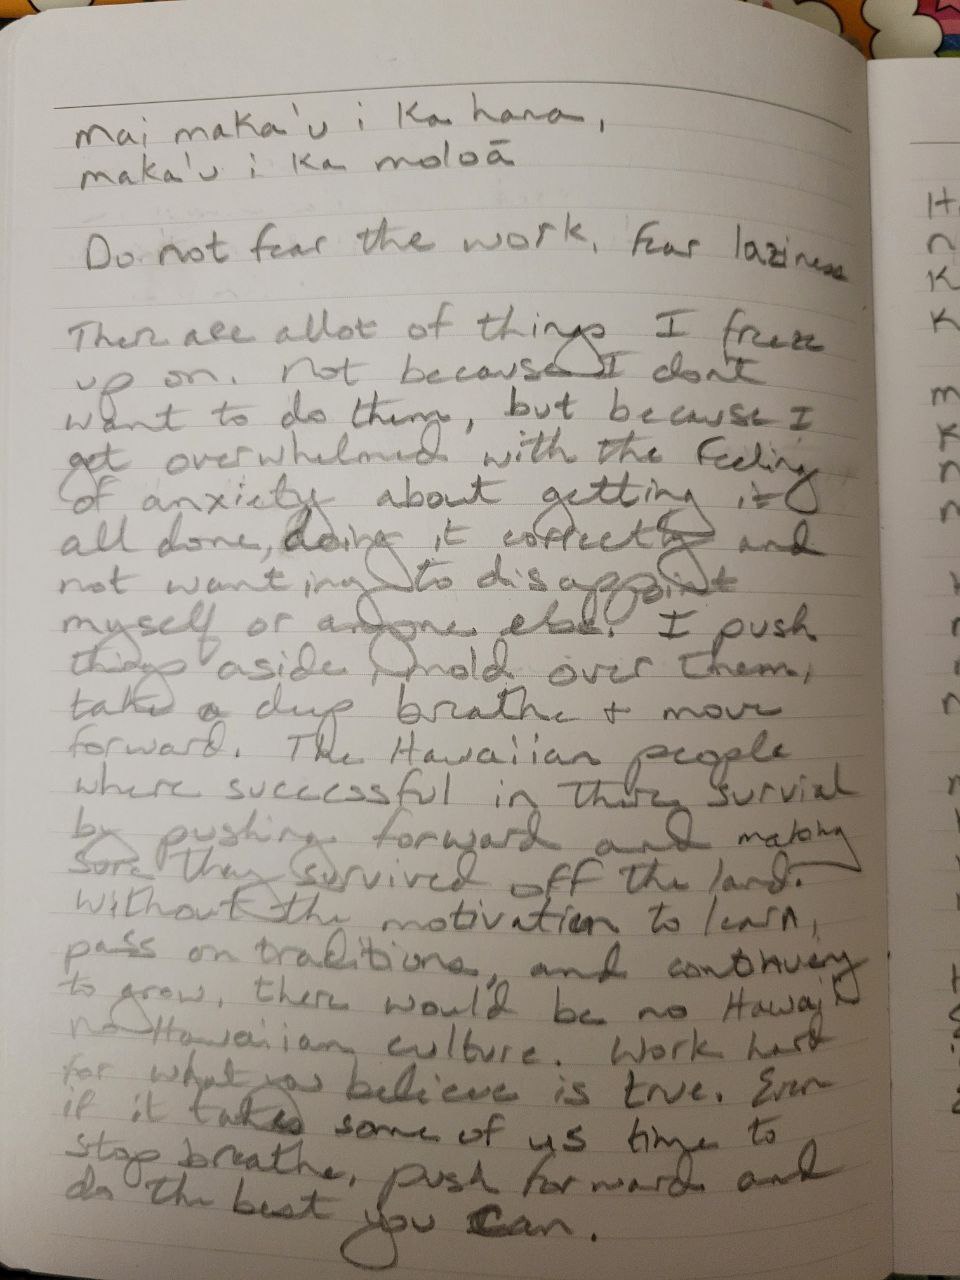 Mai maka'u i ka hana,
maka'u i ka moloā
Do not fear the work, fear laziness
There are allot of things I freeze
up on. Not because I dont
want to do them, but because I
get overwhelmed with the feeling
of anxiety about getting it
all done, doing it correctly and
not wanting to disappoint
myself or anyone else. I push
things aside, mold over them,
take a deep breathe + move
forward. The Hawaiian people
where successful in there survial
by pushing forward and making
sore they survived off the land.
Without the motivation to learn,
pass on traditions, and continuing
to grow, there would be no Hawai'i
no Hawaiian culture. Work hard
for what you believe is true. Even
if it takes some of us time to
stop breathe, push forward and
do the best you can.
H
n
K
K
m
K
n
n